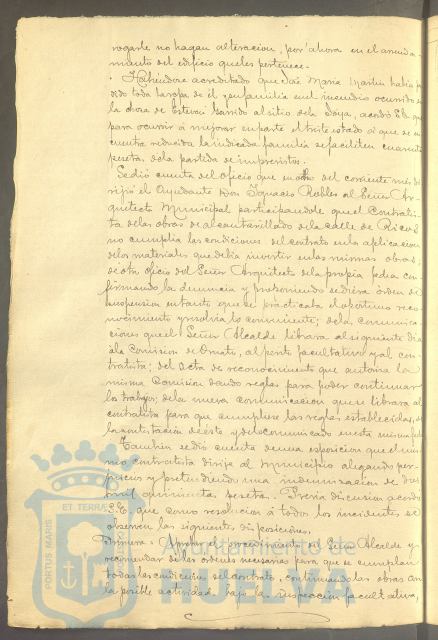 rogarle no hagan alteracion, por ahora en el arrenda-
miento del edificio que les pertenece.
Habiendose acreditado que José Maria Martin habia per-
dido toda la ropa de el y su familia en el incendio ocurrido en
la choza de Estevan Garrido al sitio de la Joya, acordó S.E. que
para ocurrir á mejorar en parte el triste estado á que se en-
cuentra reducida la indicada familia se faciliten cuarenta
pesetas de la partida de imprevistos.
Se dió cuenta del oficio que en del corriente mes di-
rijió el Ayudante Don Ignacio Robles al Señor Ar-
quitecto Municipal participandole que el Contratis-
ta de las obras de alcantarillado de la calle de Ricos
no cumplia las condiciones del contrato en la aplicacion
de los materiales que debia invertir en las mismas obras;
de otro oficio del Señor Arquitecto de la propia fecha con-
firmando la denuncia y proponiendo se diera órden de
suspension en tanto que se practicaba el oportuno reco-
nocimiento y resolvia lo conveniente; de la comunica-
ciones que el Señor Alcalde librara al siguiente dia
á la Comision de Ornato, al perito facultativo y al con-
tratista; del acta de reconocimiento que autoriza la
misma Comision dando reglas para poder continuar
los trabajos; de la nueva comunicacion que se librara al
contratista para que cumpliese las reglas establecidas, de
la contestacion de éste y de lo comunicado en esta misma fecha
Tambien se dió cuenta de una esposicion que el mis-
mo contratista dirije al Municipio alegando per-
juicios y pretendiendo una indemnizacion de dos
mil quinientas pesetas. Previa discusion acordó
S.E. que como resolucion á todos los incidentes se
observen las siguientes disposiciones.
Primera: Aprobar el procedimiento del Señor Alcalde y
recomendar dé las ordenes necesarias para que se cumplan
todas las condiciones del contrato, continuando las obras con
la posible actividad, bajo la inspeccion facultativa,
PORTUS MARIS ET TERRAE
Ayuntamiento de
HUELVA